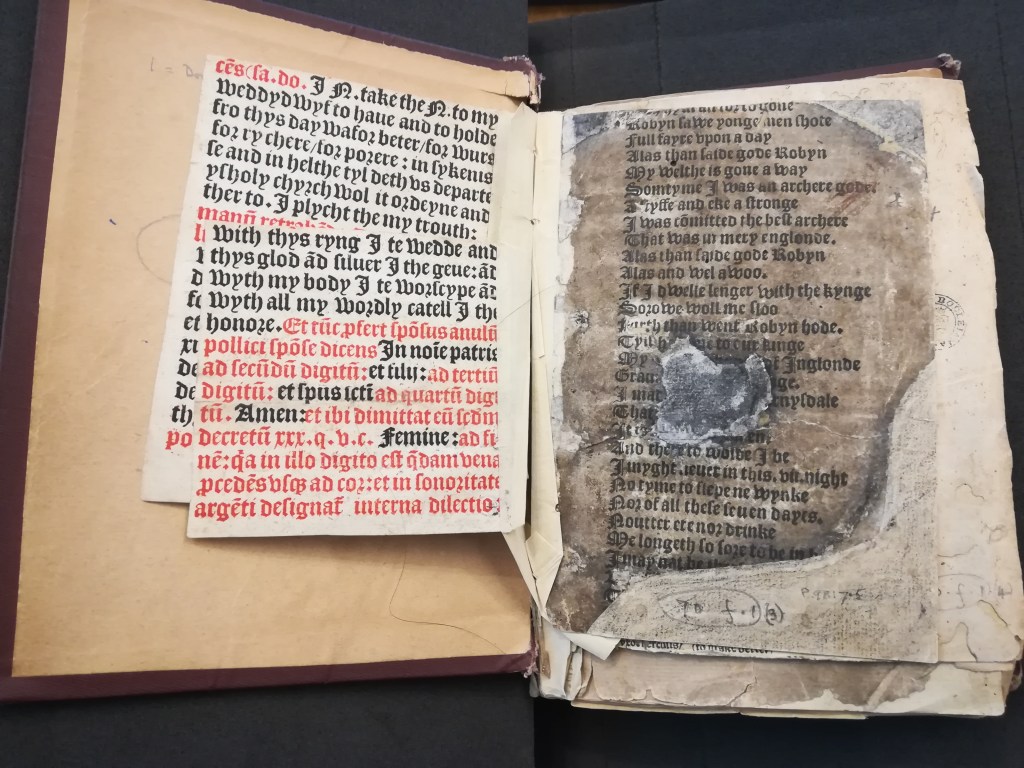 cēs (sa.do. I N. take the N. to my
weddyd wyf to haue and to holde
fro thys day wafor beter/for wurs
for ry chere/for porere: in sykenis
se and in helthe tyl deth vs departe
ysholy chyrch wol it ordeyne and
ther to. I plycht the my trouth:
With thys ryng I te wedde and
thys glod ād siluer I the geue: ād
Wyth my body I te worscype ād
Wyth all my wordly catell I the
honore. Et tūc ꝓfert spōsus anulū
pollici spōse dicens In noīe patris
ad secūdū digitū: et filij: ad tertiū
digitū: et spus scti ad quartū digi
tū. Amen: et ibi dimittat eū scdm
decretū xxx. q. v. c. Femine: ad fi
nē: q̄a in illo digito est q̄dam vena
ꝓcedēs vsqꝫ ad cor: et in sonoritate
argēti designat̄ interna dilectio
Robyn sawe yonge men shote
Full fayre vpon a day
Alas than saide gode Robyn
My welthe is gone a way
Somtyme I was an archere gode
A styffe and eke a stronge
I was cōmitted the best archere
That was in mery englonde.
Alas than saide gode Robyn
Alas and wel a woo.
If I dwelle lenger with the kynge
Sorowe woll me sloo
Forth than went Robyn hode.
to our kinge
My of Inglonde
I mad
That
And ther to wolde I be
I myght neuer in this. vii. night
No tyme to slepe ne wynke
Nor of all these seuen dayes.
Noutter ete nor drinke
Me longeth so sore to be in
I may not be